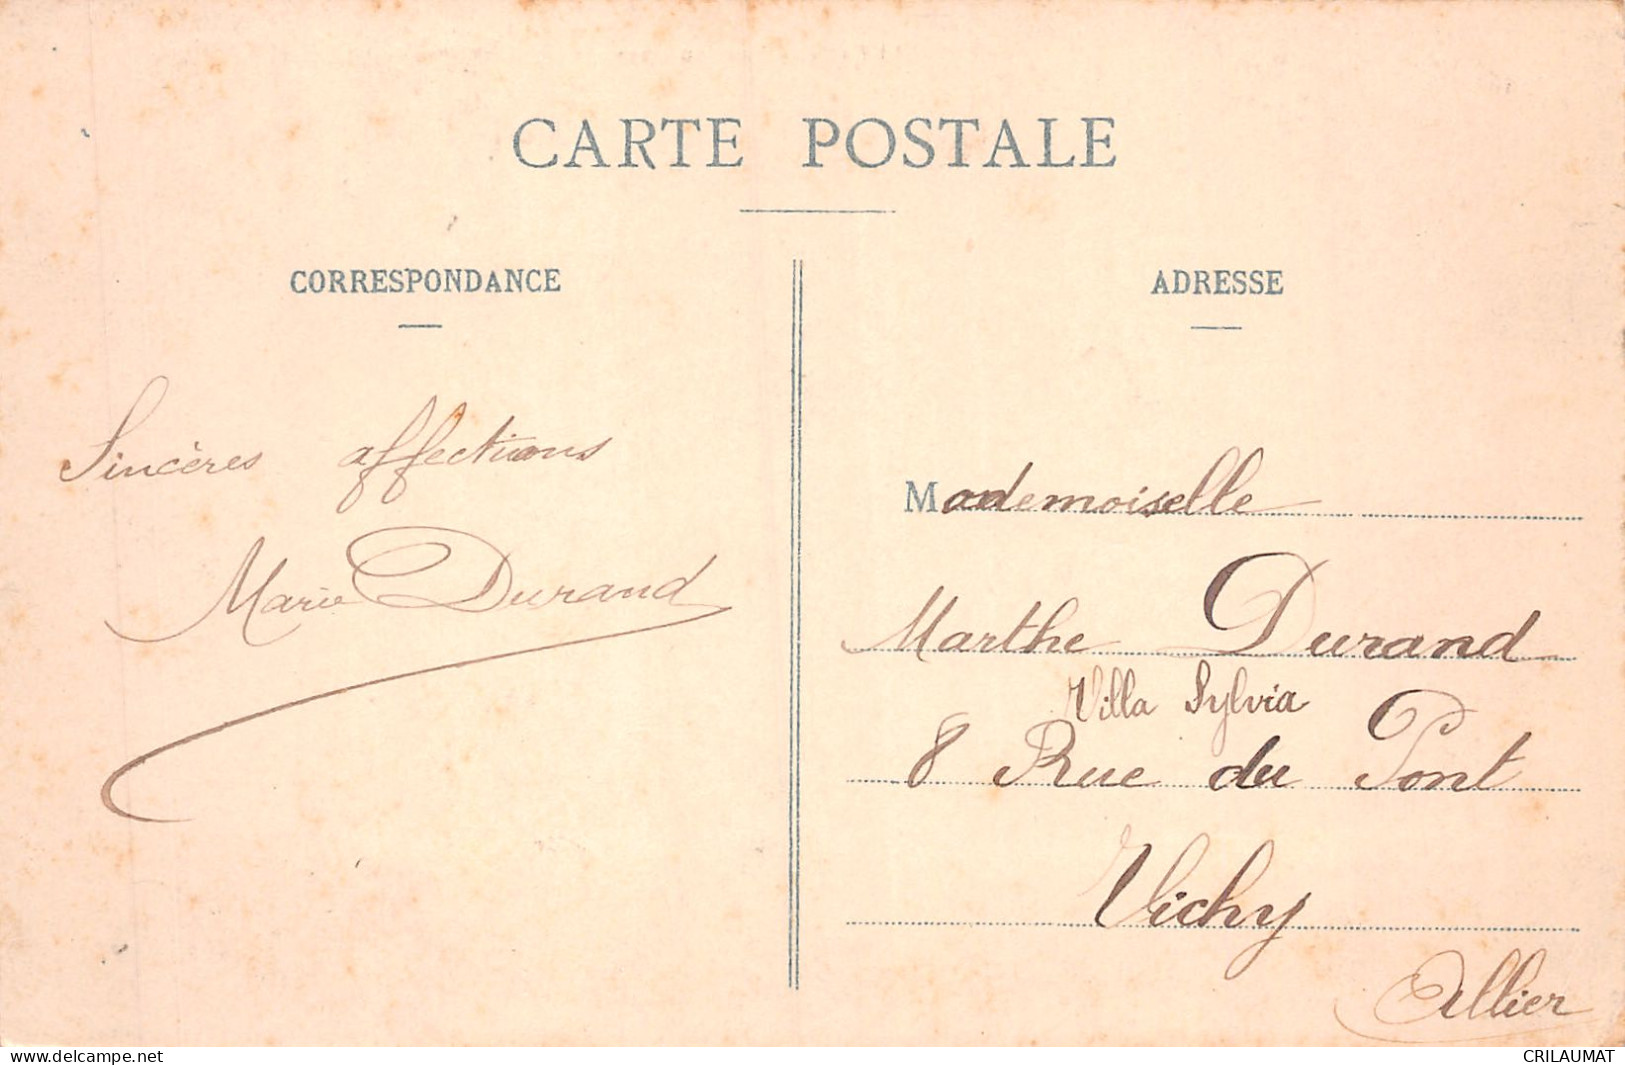 CARTE POSTALE
CORRESPONDANCE
Sincères affections
Marie Durand
ADRESSE
Mademoiselle
Marthe Durand
Villa Sylvia
8 Rue du Pont
Vichy
Allier
www.delcampe.net
CRILAUMAT